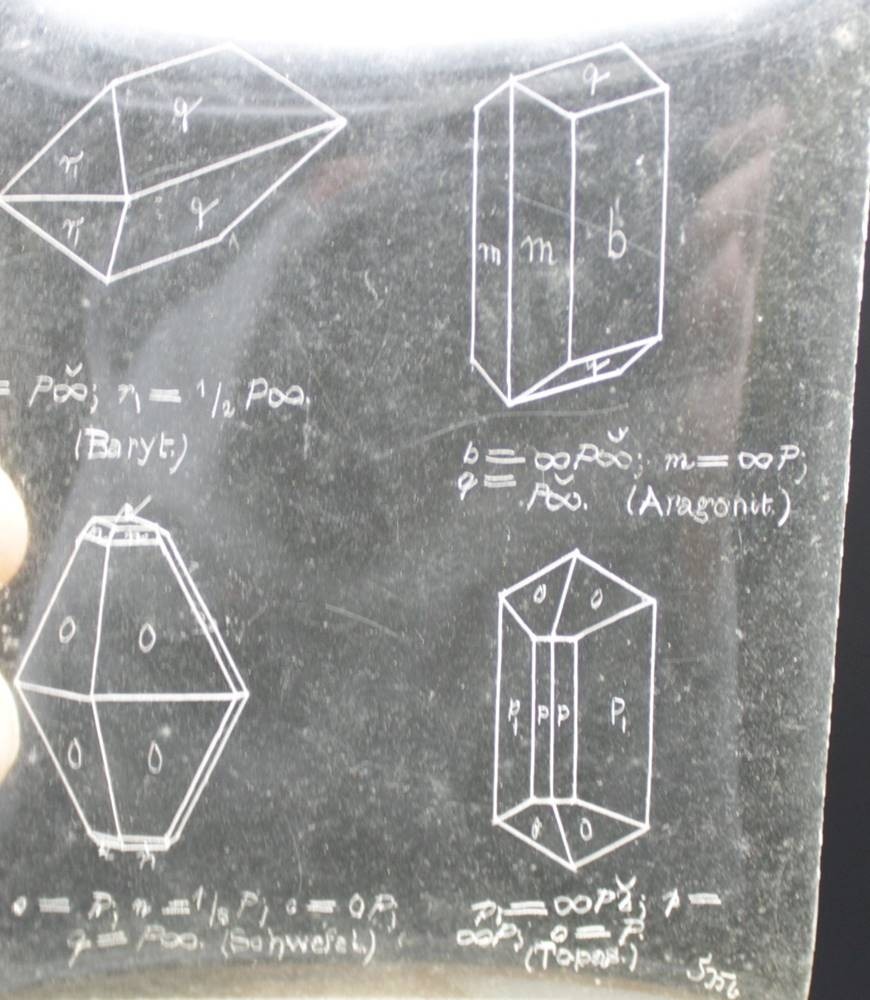 q
r₁
r₁
q
q
m
m
b
q
= Pꝏ̆; r₁ = 1/2 P∞.
(Baryt.)
b = ∞P∞̆; m = ∞P;
q = P∞̆. (Aragonit.)
o
o
o
o
o
o
p₁
p
p
p₁
o
o
o = P; n = 1/3 P; c = 0P;
q = P∞. (Schwefel.)
p₁ = ∞P2̆; p =
∞P; o = P.
(Topas.)